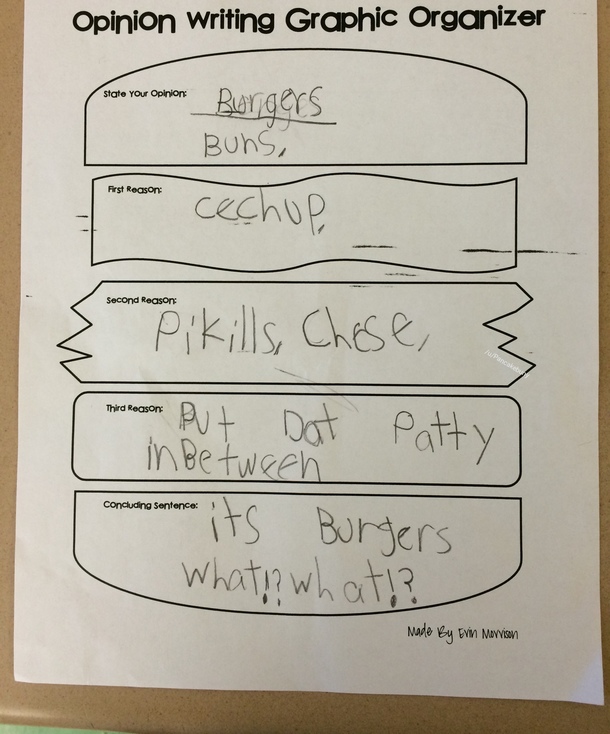 Opinion Writing Graphic Organizer
State Your Opinion:
Burgers
Buns,
First Reason:
cechup,
Second Reason:
Pikills, Chese,
Third Reason:
Put Dat Patty
inBetween
Concluding Sentence:
its Burgers
what!? what!?
Made By Erin Morrison